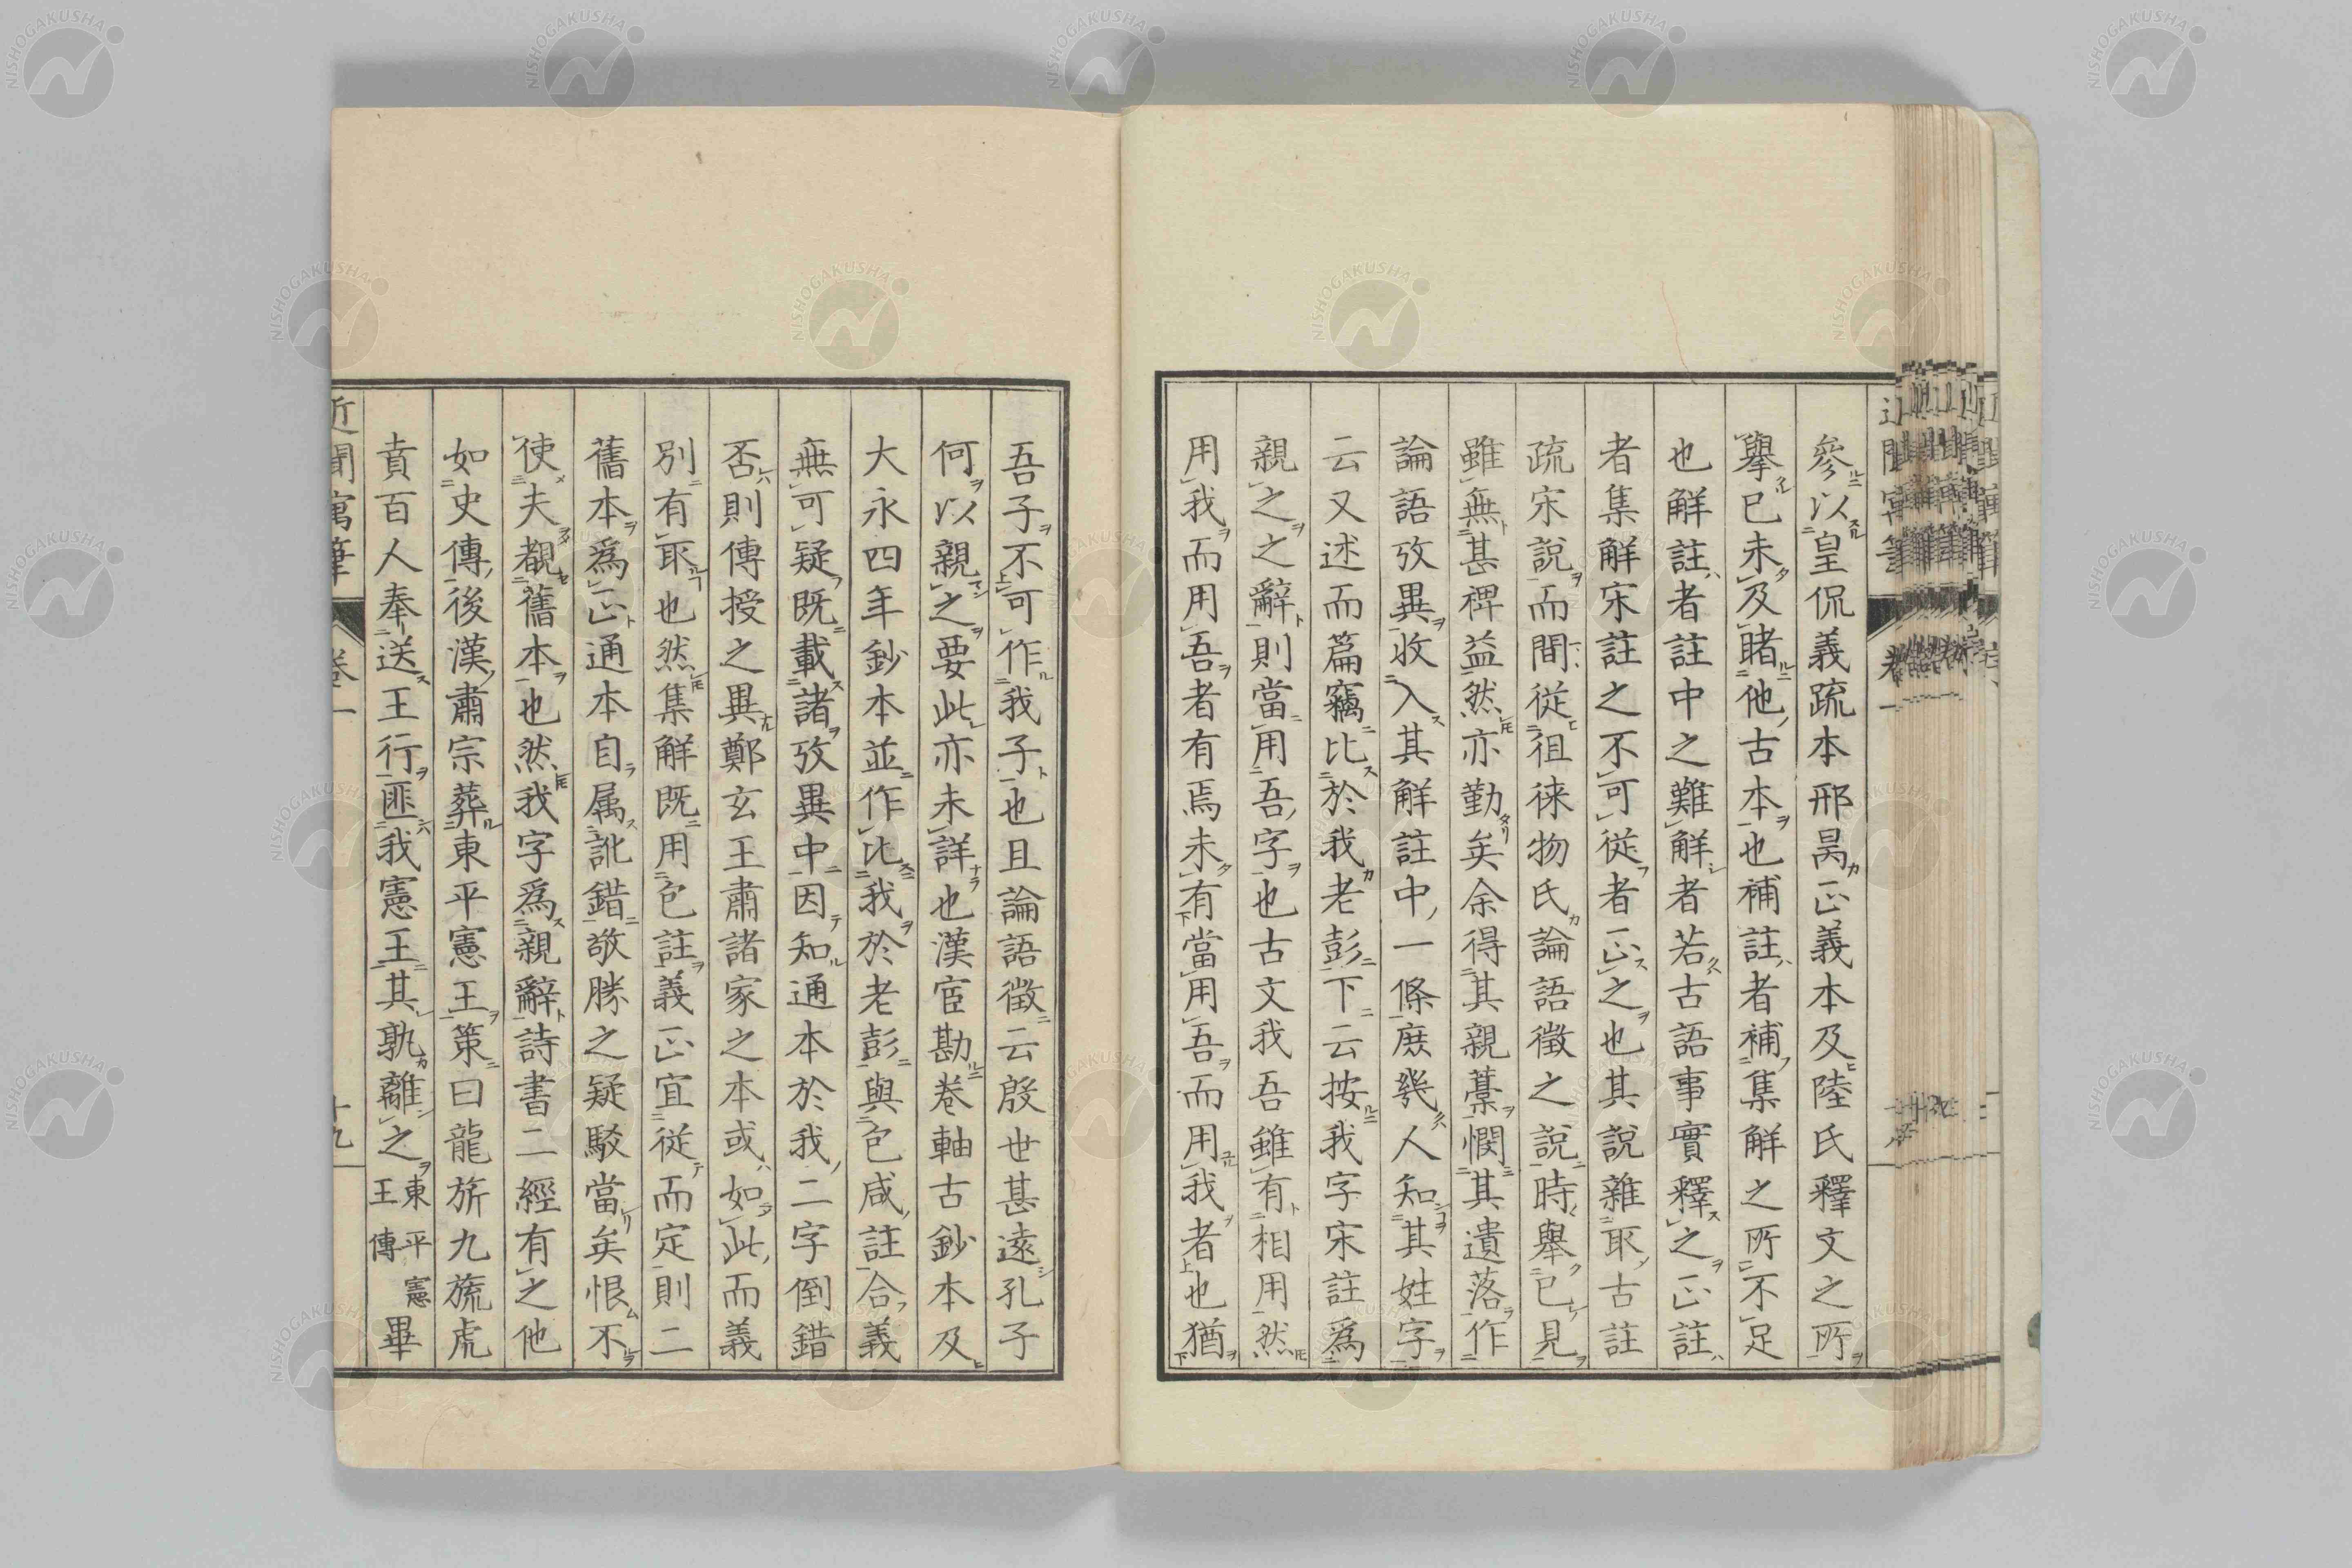 參以皇侃義疏本邢昺正義本及陸氏釋文之所
擧已未及睹他古本也補註者補集解之所不足
也解註者註中之難解者若古語事實釋之正註
者集解宋註之不可從者正之也其說雜取古註
疏宋說而間從徂徠物氏論語徵之說時擧已見
雖無甚裨益然亦勤矣余得其親藁憫其遺落作
論語攷異收入其解註中一條庶幾人知其姓字
云又述而篇竊比於我老彭下云按我字宋註爲
親之之辭則當用吾字也古文我吾雖有相用然
用我而用吾者有焉未有當用吾而用我者也猶
吾子不可作我子也且論語徵云殷世甚遠孔子
何以親之要此亦未詳也漢宦勘卷軸古鈔本及
大永四年鈔本並作比我於老彭與包咸註合義
無可疑既載諸攷異中因知通本於我二字倒錯
否則傳授之異鄭玄王肅諸家之本或如此而義
別有取也然集解既用包註義正宜從而定則二
舊本爲正通本自属訛錯敬勝之疑駁當矣恨不
使夫覩舊本也然我字爲親辭詩書二經有之他
如史傳後漢肅宗葬東平憲王策曰龍旂九旒虎
賁百人奉送王行匪我憲王其孰離之東平憲王傳畢
近聞寓筆 卷一 十九
NISHOGAKUSHA